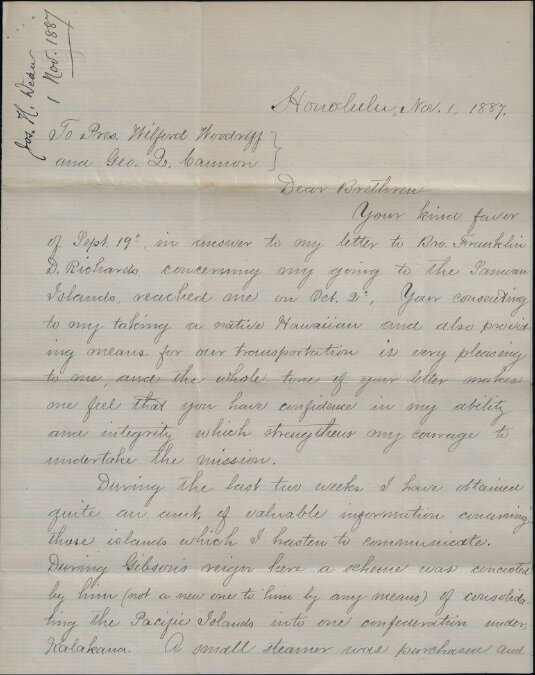 Jos. H. Dean
1 Nov. 1887
Honolulu, Nov. 1, 1887.
To Pres. Wilford Woodriff
and Geo. Q. Cannon
Dear Brethren
Your kind favor
of Sept. 19", in answer to my letter to Bro. Franklin
D. Richards, concerning my going to the Samoan
Islands, reached me on Oct. 2". Your consenting
to my taking a native Hawaiian and also provid-
ing means for our transportation is very pleasing
to me, and the whole tone of your letter makes
me feel that you have confidence in my ability
and integrity which strengthens my courage to
undertake the mission.
During the last two weeks I have obtained
quite an amt. of valuable information concerning
those islands which I hasten to communicate.
During Gibson's reign here a scheme was concocted
by him (not a new one to him by any means) of consolida-
ting the Pacific Islands into one confederation under
Kalakaua. A small steamer was purchased and